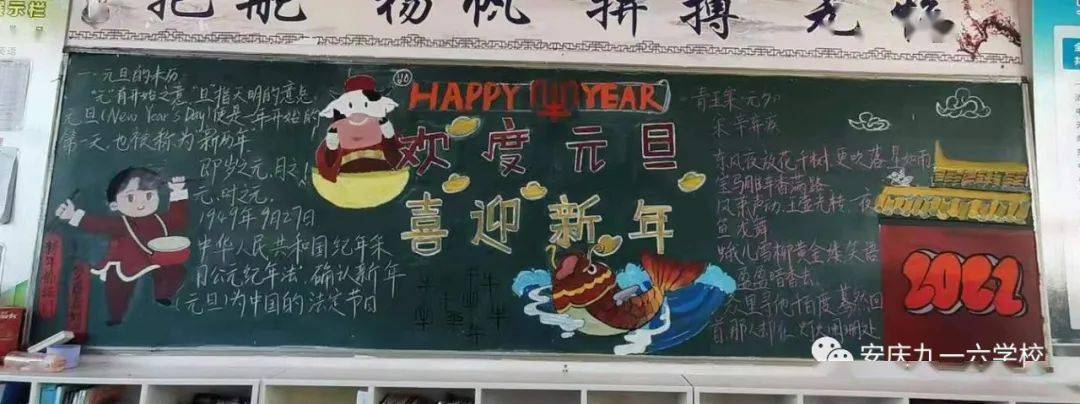 扬帆 拼搏
示栏
一.元旦的来历
"元"有开始之意"旦"指天明的意思
元旦(New Year's Day)便是一年开始的
第一天,也被称为"新历年"
即岁之元,月之
元,时之元。
1949年9月27日
中华人民共和国纪年采
用公元纪年法,确认新年
(元旦)为中国的法定节日
HAPPY YEAR
欢度元旦
喜迎新年
青玉案·元夕
宋 辛弃疾
东风夜放花千树,更吹落,星如雨
宝马雕车香满路
凤箫声动,玉壶光转,一夜
鱼龙舞
蛾儿雪柳黄金缕笑语
盈盈暗香去
众里寻他千百度,蓦然回
首那人却在
2022
安庆九一六学校